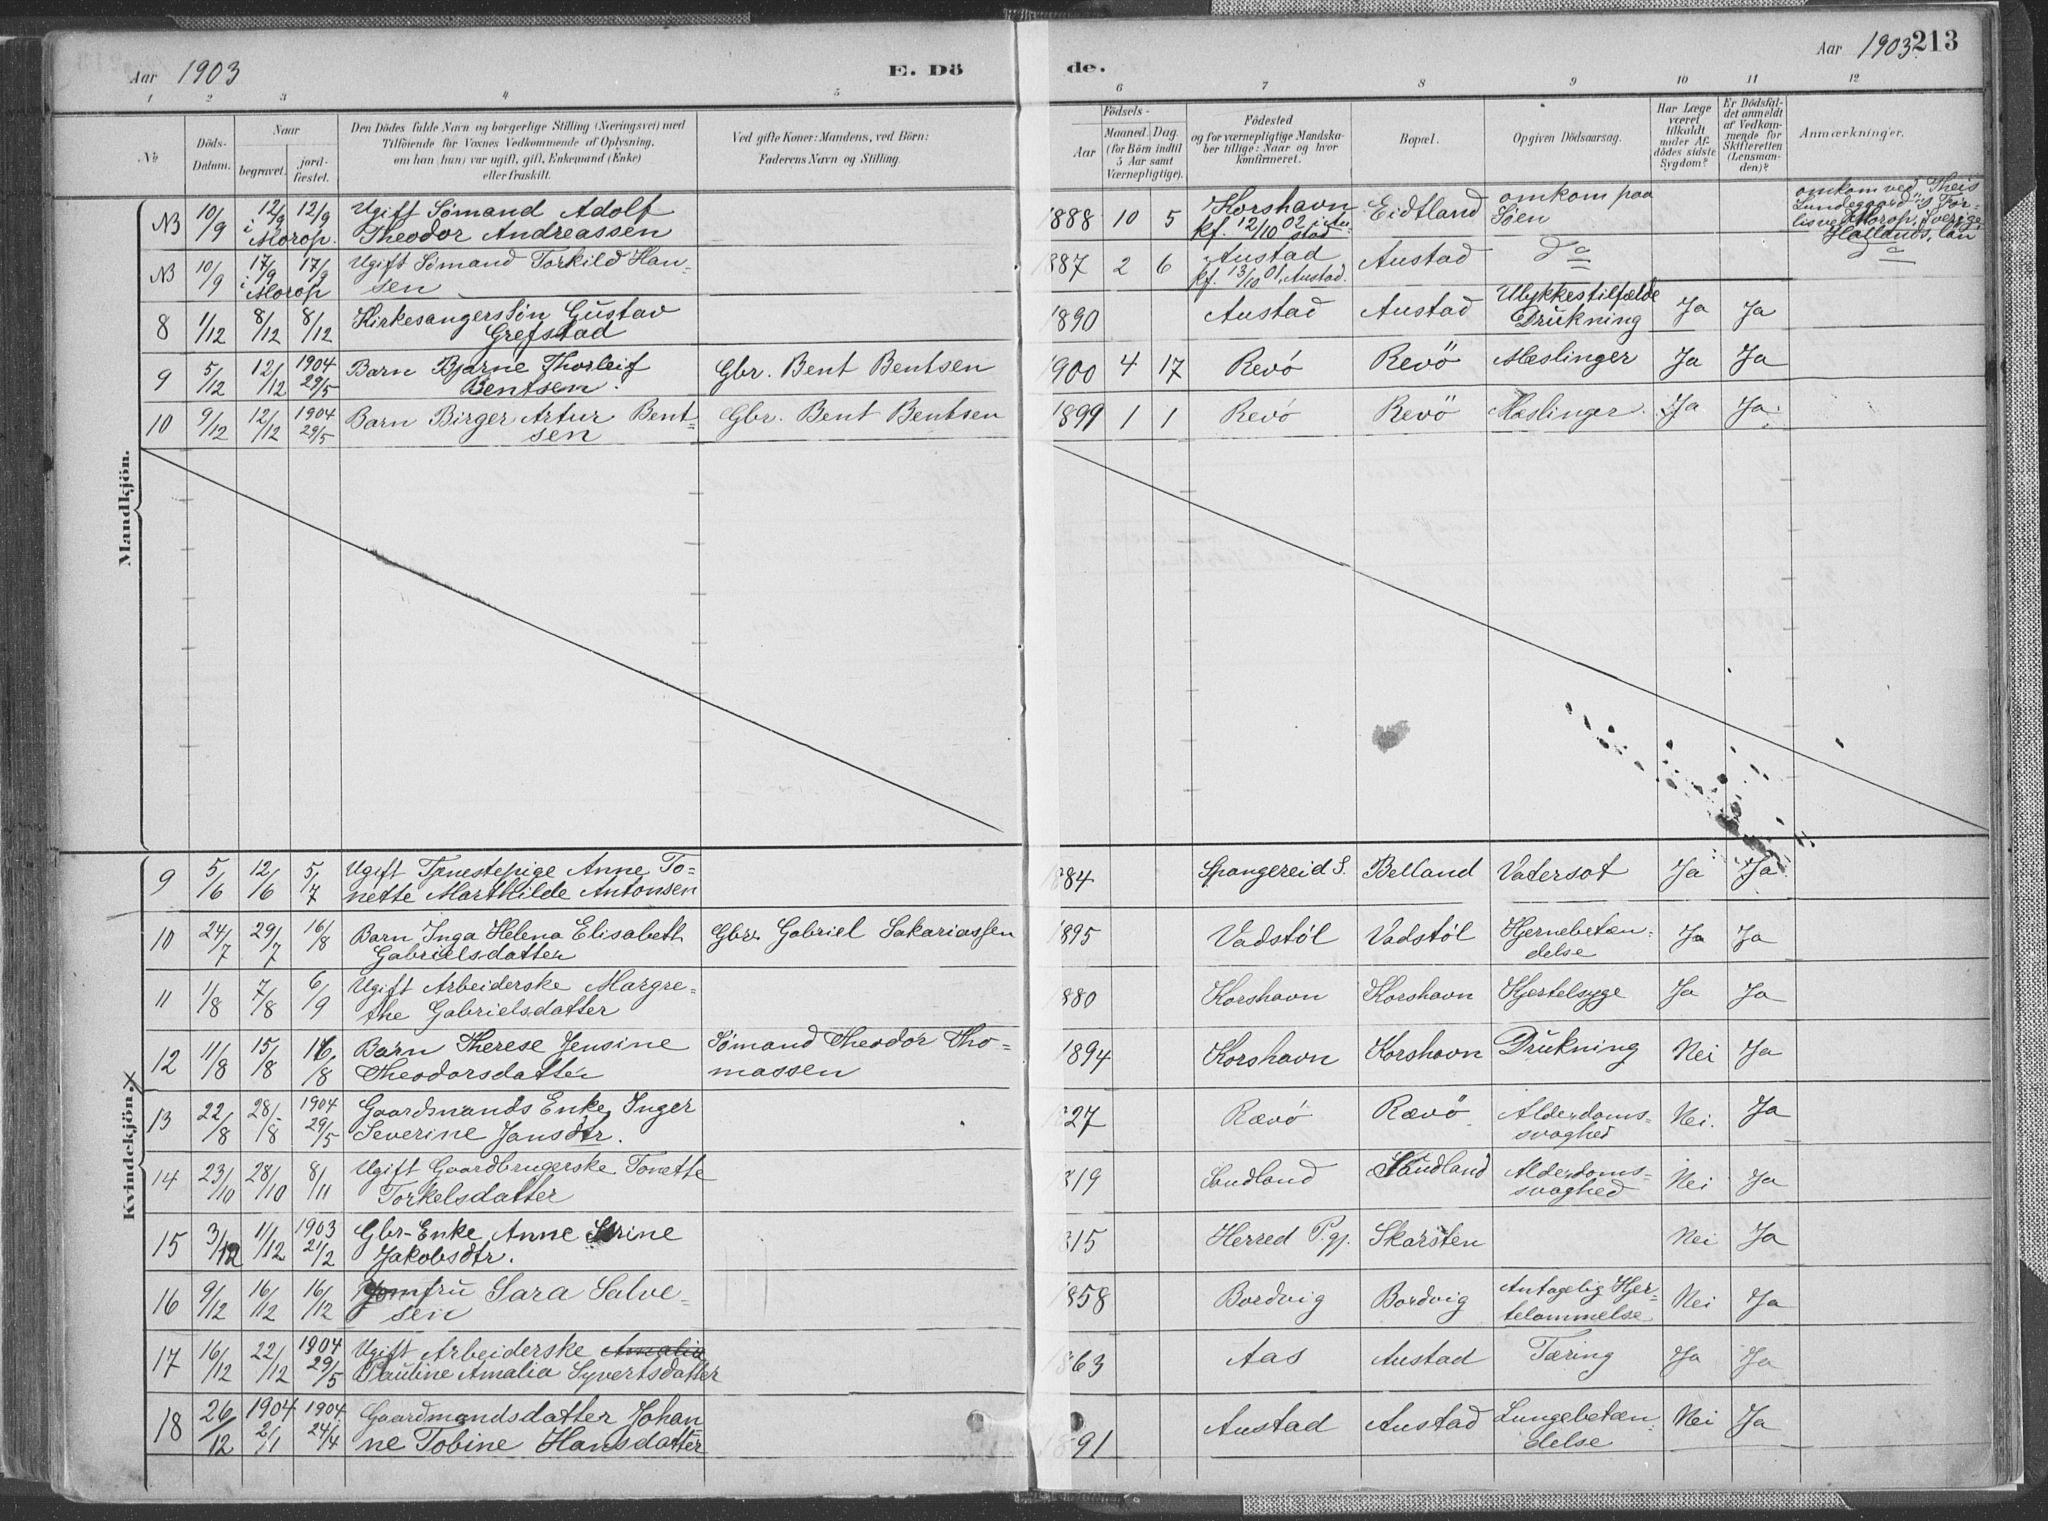 Aar 1903 E. Dö de. Aar 1903. 213
1 2 3 4 5 6 7 8 9 10 11 12
№ Döds-Datum. Naar begravet. jord-fæstet. Den Dödes fulde Navn og borgerlige Stilling (Næringsvei) med Tilföiende for Voxnes Vedkommende af Oplysning, om han (hun) var ugift, gift, Enkemand (Enke) eller fraskilt. Ved gifte Koner: Mandens, ved Börn: Faderens Navn og Stilling. Födsels- Aar Maaned. Dag. (for Börn indtil 5 Aar samt Værnepligtige). Födested og for værnepligtige Mandskaber tillige: Naar og hvor Konfirmeret. Bopæl. Opgiven Dödsaarsag. Har Læge været tilkaldt under Afdödes sidste Sygdom? Er Dödsfaldet anmeldt af Vedkommende for Skifteretten (Lensmanden)? Anmærkninger.
Mandkjön.
NB 10/9 12/9 i Morop. 12/9 Ugift Sömand Adolf Theodor Andreassen 1888 10 5 Korshavn kf. 12/10 02 i Austad Eidtland omkom paa Söen omkom ved "Theis Lundegaard"s Forlis ved Morop, Sverige, Hallands län
NB 10/9 17/9 i Morop 17/9 Ugift Sömand Torkild Hansen 1887 2 6 Austad kf. 13/10 01, Austad. Austad do do
8 1/12 8/12 8/12 KirkesangersSön Gustav Grefstad 1890 Austad Austad Ulykkestilfælde Drukning Ja Ja
9 5/12 12/12 1904 29/5 Barn Bjarne Thorleif Bentsen. Gbr. Bent Bentsen 1900 4 17 Revö Revö Mæslinger Ja Ja
10 9/12 12/12 1904 29/5 Barn Birger Artur Bentsen Gbr. Bent Bentsen 1899 1 1 Revö Revö Mæslinger. Ja Ja.
Kvindekjön. X
9 5/6 12/6 5/7 Ugift Tjenestepige Anne Tonette Marthilde Antonsen 1884 Spangereid S. Belland Vatersot Ja Ja
10 24/7 29/7 16/8 Barn Inga Helena Elisabeth Gabrielsdatter Gbr. Gabriel Sakariassen 1895 Vadstöl Vadstöl Hjernebetændelse Ja Ja
11 1/8 7/8 6/9 Ugift Arbeiderske Margrethe Gabrielsdatter 1880 Korshavn Korshavn Kjertelsyge Ja Ja
12 11/8 15/8 16/8 Barn Therese Jensine Theodorsdatter Sömand Theodor Thomassen 1894 Korshavn Korshavn Drukning Nei Ja
13 22/8 28/8 1904 29/5 Gaardmands Enke, Inger Severine Jansdtr. 1827 Rævö Rævö Alderdomssvaghed Nei. Ja
14 23/10 28/10 8/11 Ugift Gaardbrugerske Tonette Torkelsdatter 1819 Sandland Sandland Alderdomssvaghed Nei Ja
15 3/12 11/12 1903 21/2 Gbr-Enke Anne Serine Jakobsdtr. 1815 Herred P.gj. Skarsten Nei Ja
16 9/12 16/12 16/12 Jomfru Sara Salvesen 1858 Bordvig Bordvig Antagelig Hjertelammelse Nei Ja
17 16/12 22/12 1904 29/5 Ugift Arbeiderske Amalia Pauline Amalia Syvertsdatter 1863 Aas Austad Tæring Ja Ja
18 26/12 1904 2/1 1904 24/4 Gaardmandsdatter Johanne Tobine Hansdatter 1891 Austad Austad Lungebetændelse Nei Ja